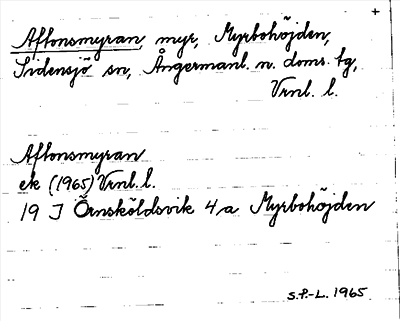 +
Aftonsmyran, myr, Myrbohöjden,
Sidensjö sn, Ångermanl. n. doms. tg,
Vrnl. l.
Aftonsmyran
ek (1965) Vrnl. l.
19 J Örnsköldsvik 4 a Myrbohöjden
S.P.-L. 1965